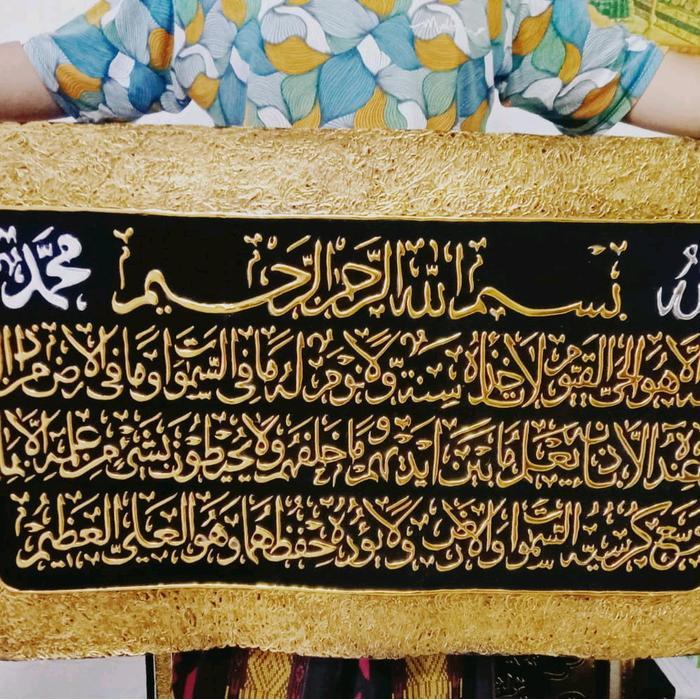 بسم الله الرحمن الرحيم
محمد
هو الحي القيوم لا تأخذه سنة ولا نوم له ما في السموات وما في الارض من ذا
الا باذنه يعلم ما بين ايديهم وما خلفهم ولا يحيطون بشيء من علمه الا بما
وسع كرسيه السموات والارض ولا يؤده حفظهما وهو العلي العظيم